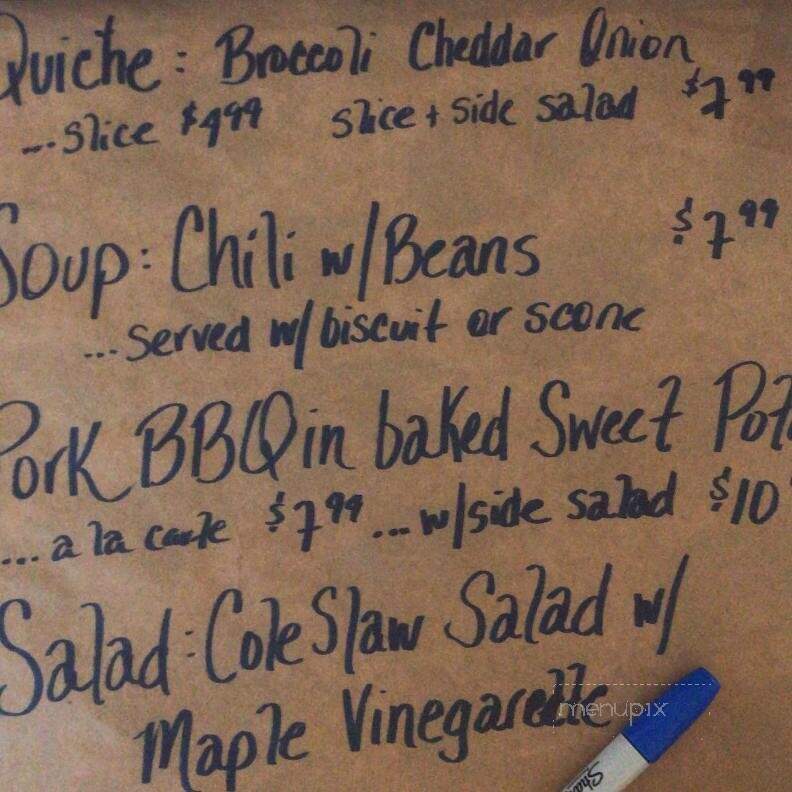 Quiche: Broccoli Cheddar Onion
...slice $4.99 slice + side salad $7.99
Soup: Chili w/Beans $7.99
...served w/biscuit or scone
Pork BBQ in baked Sweet Pota
...a la carte $7.99 ...w/side salad $10
Salad: Cole Slaw Salad w/
Maple Vinegarette
menupix
Sha